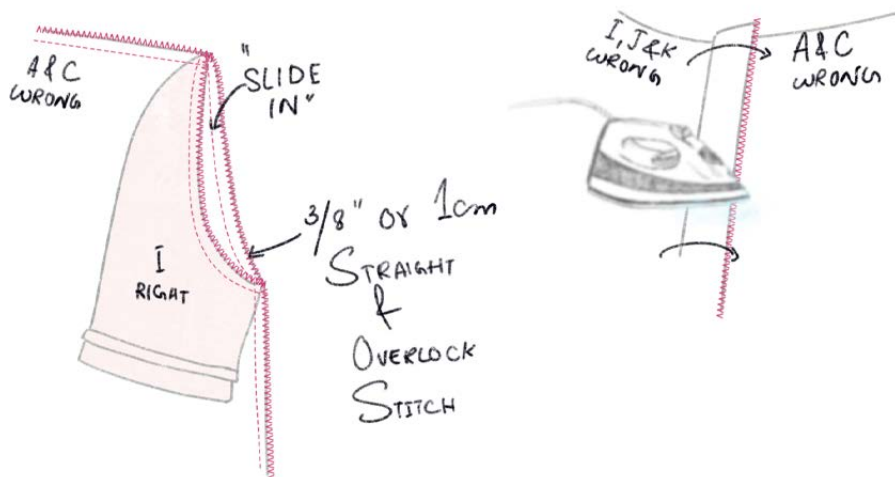 A & C
WRONG
"SLIDE
IN"
3/8" or 1cm
STRAIGHT
&
OVERLOCK
STITCH
I
RIGHT
I, J & K
WRONG
A & C
WRONG